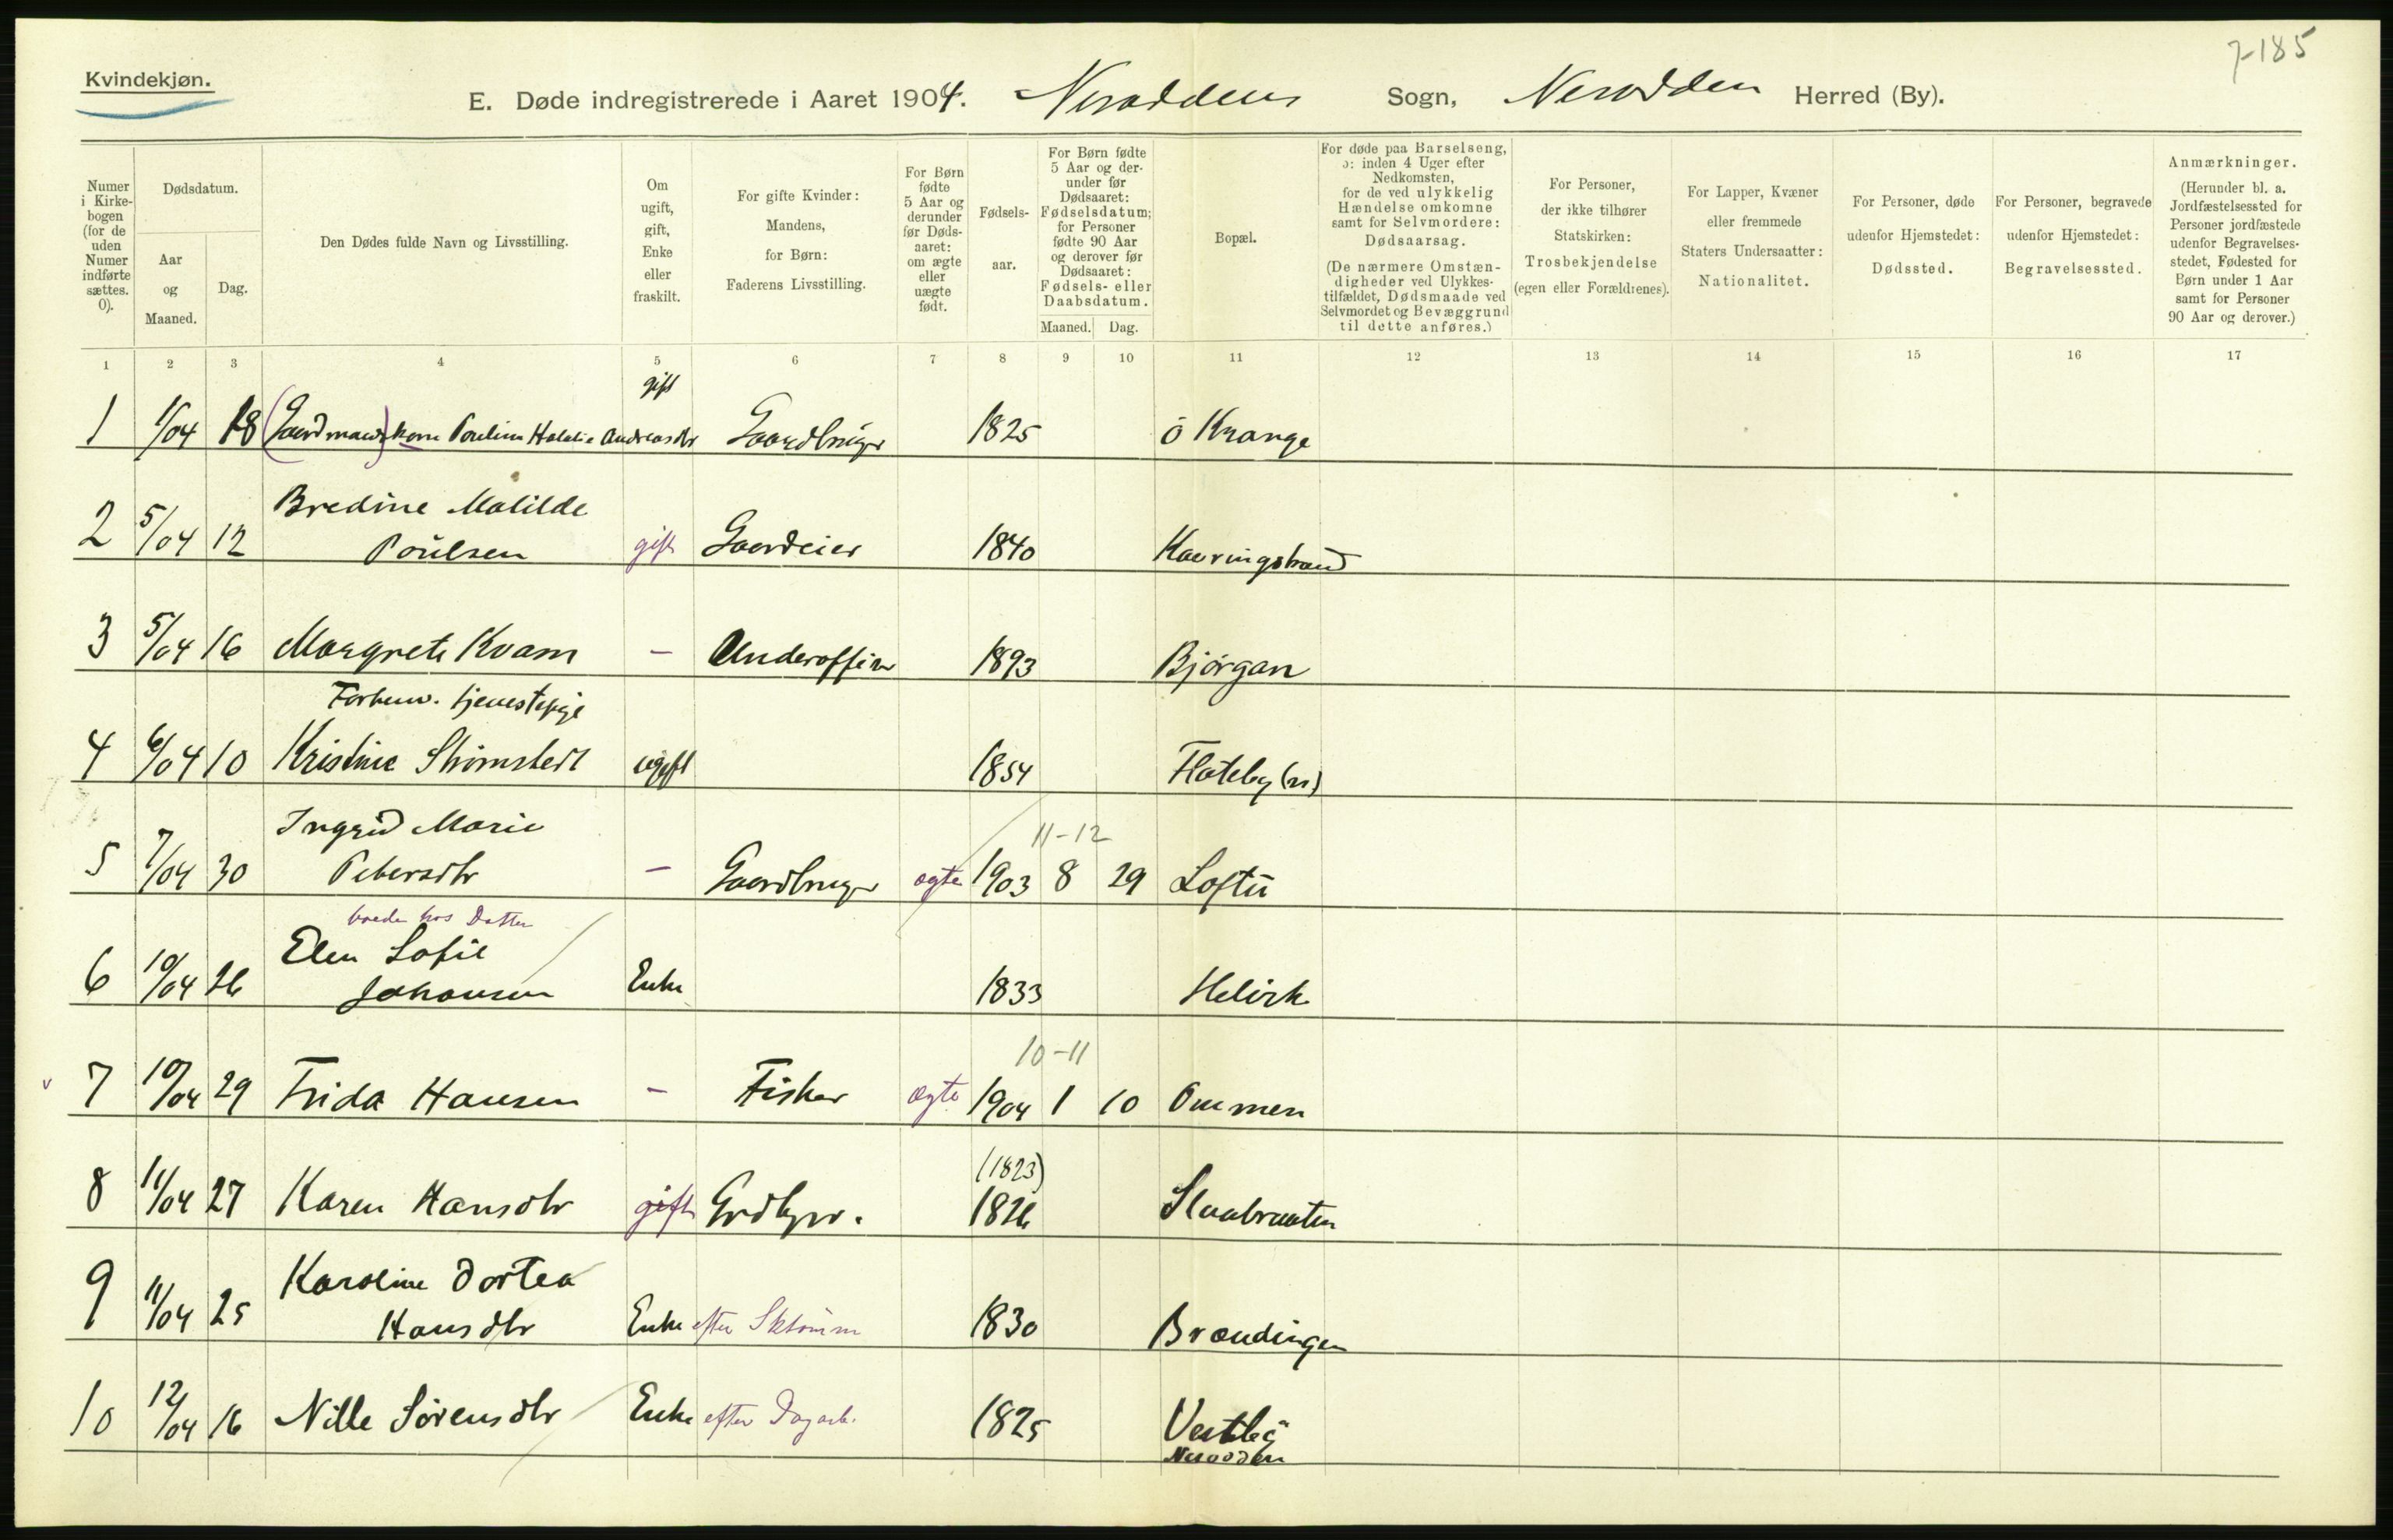 7-185
Kvindekjøn.
E. Døde indregistrerede i Aaret 1904. Nesoddens Sogn, Nesodden Herred (By).
Numer i Kirkebogen (for de uden Numer indførte sættes. 0).
Dødsdatum.
Aar og Maaned.
Dag.
Den Dødes fulde Navn og Livsstilling.
Om ugift, gift, Enke eller fraskilt.
For gifte Kvinder: Mandens, for Børn: Faderens Livsstilling.
For Børn fødte 5 Aar og derunder før Dødsaaret: om ægte eller uægte født.
Fødselsaar.
For Børn fødte 5 Aar og derunder før Dødsaaret: Fødselsdatum; for Personer fødte 90 Aar og derover før Dødsaaret: Fødsels- eller Daabsdatum.
Maaned. Dag.
Bopæl.
For døde paa Barselseng, ɔ: inden 4 Uger efter Nedkomsten, for de ved ulykkelig Hændelse omkomne samt for Selvmordere: Dødsaarsag.
(De nærmere Omstændigheder ved Ulykkestilfældet, Dødsmaade ved Selvmordet og Bevæggrund til dette anføres.)
For Personer, der ikke tilhører Statskirken: Trosbekjendelse (egen eller Forældrenes).
For Lapper, Kvæner eller fremmede Staters Undersaatter: Nationalitet.
For Personer, døde udenfor Hjemstedet: Dødssted.
For Personer, begravede udenfor Hjemstedet: Begravelsessted.
Anmærkninger.
(Herunder bl. a. Jordfæstelsessted for Personer jordfæstede udenfor Begravelsesstedet, Fødested for Børn under 1 Aar samt for Personer 90 Aar og derover.)
1 2 3 4 5 6 7 8 9 10 11 12 13 14 15 16 17
gift
1 1/04 18 (Gaardmands)kone Pouline Andreasdtr Gaardbruger 1825 Ö Krange
Bredine Matilde
2 5/04 12 Poulsen gift Gaardeier 1840 Kavringstrand
3 5/04 16 Margrete Kvam — Underoffier 1893 Björgan
Forhenv. tjenestepige
4 6/04 10 Kristine Strömstedt ugift 1854 Flateby (n)
Ingrid Marie 11-12
5 7/04 30 Petersdtr — Gaardbruger ægte 1903 8 29 Loftu
boede hos Datter
Elen Sofie
6 10/04 26 Johansen Enke 1833 Helvik
10-11
7 10/04 29 Frida Hansen — Fisker ægte 1904 1 10 Ommen
(1823)
8 11/04 27 Karen Hansdtr gift Grdbgr. 1826 Skaabraaten
Karoline Dortea
9 11/04 25 Hansdtr Enke efter 1830 Brændingen
10 12/04 16 Nille Sörensdtr Enke efter Dagarb. 1825 Vestby
Nesodden